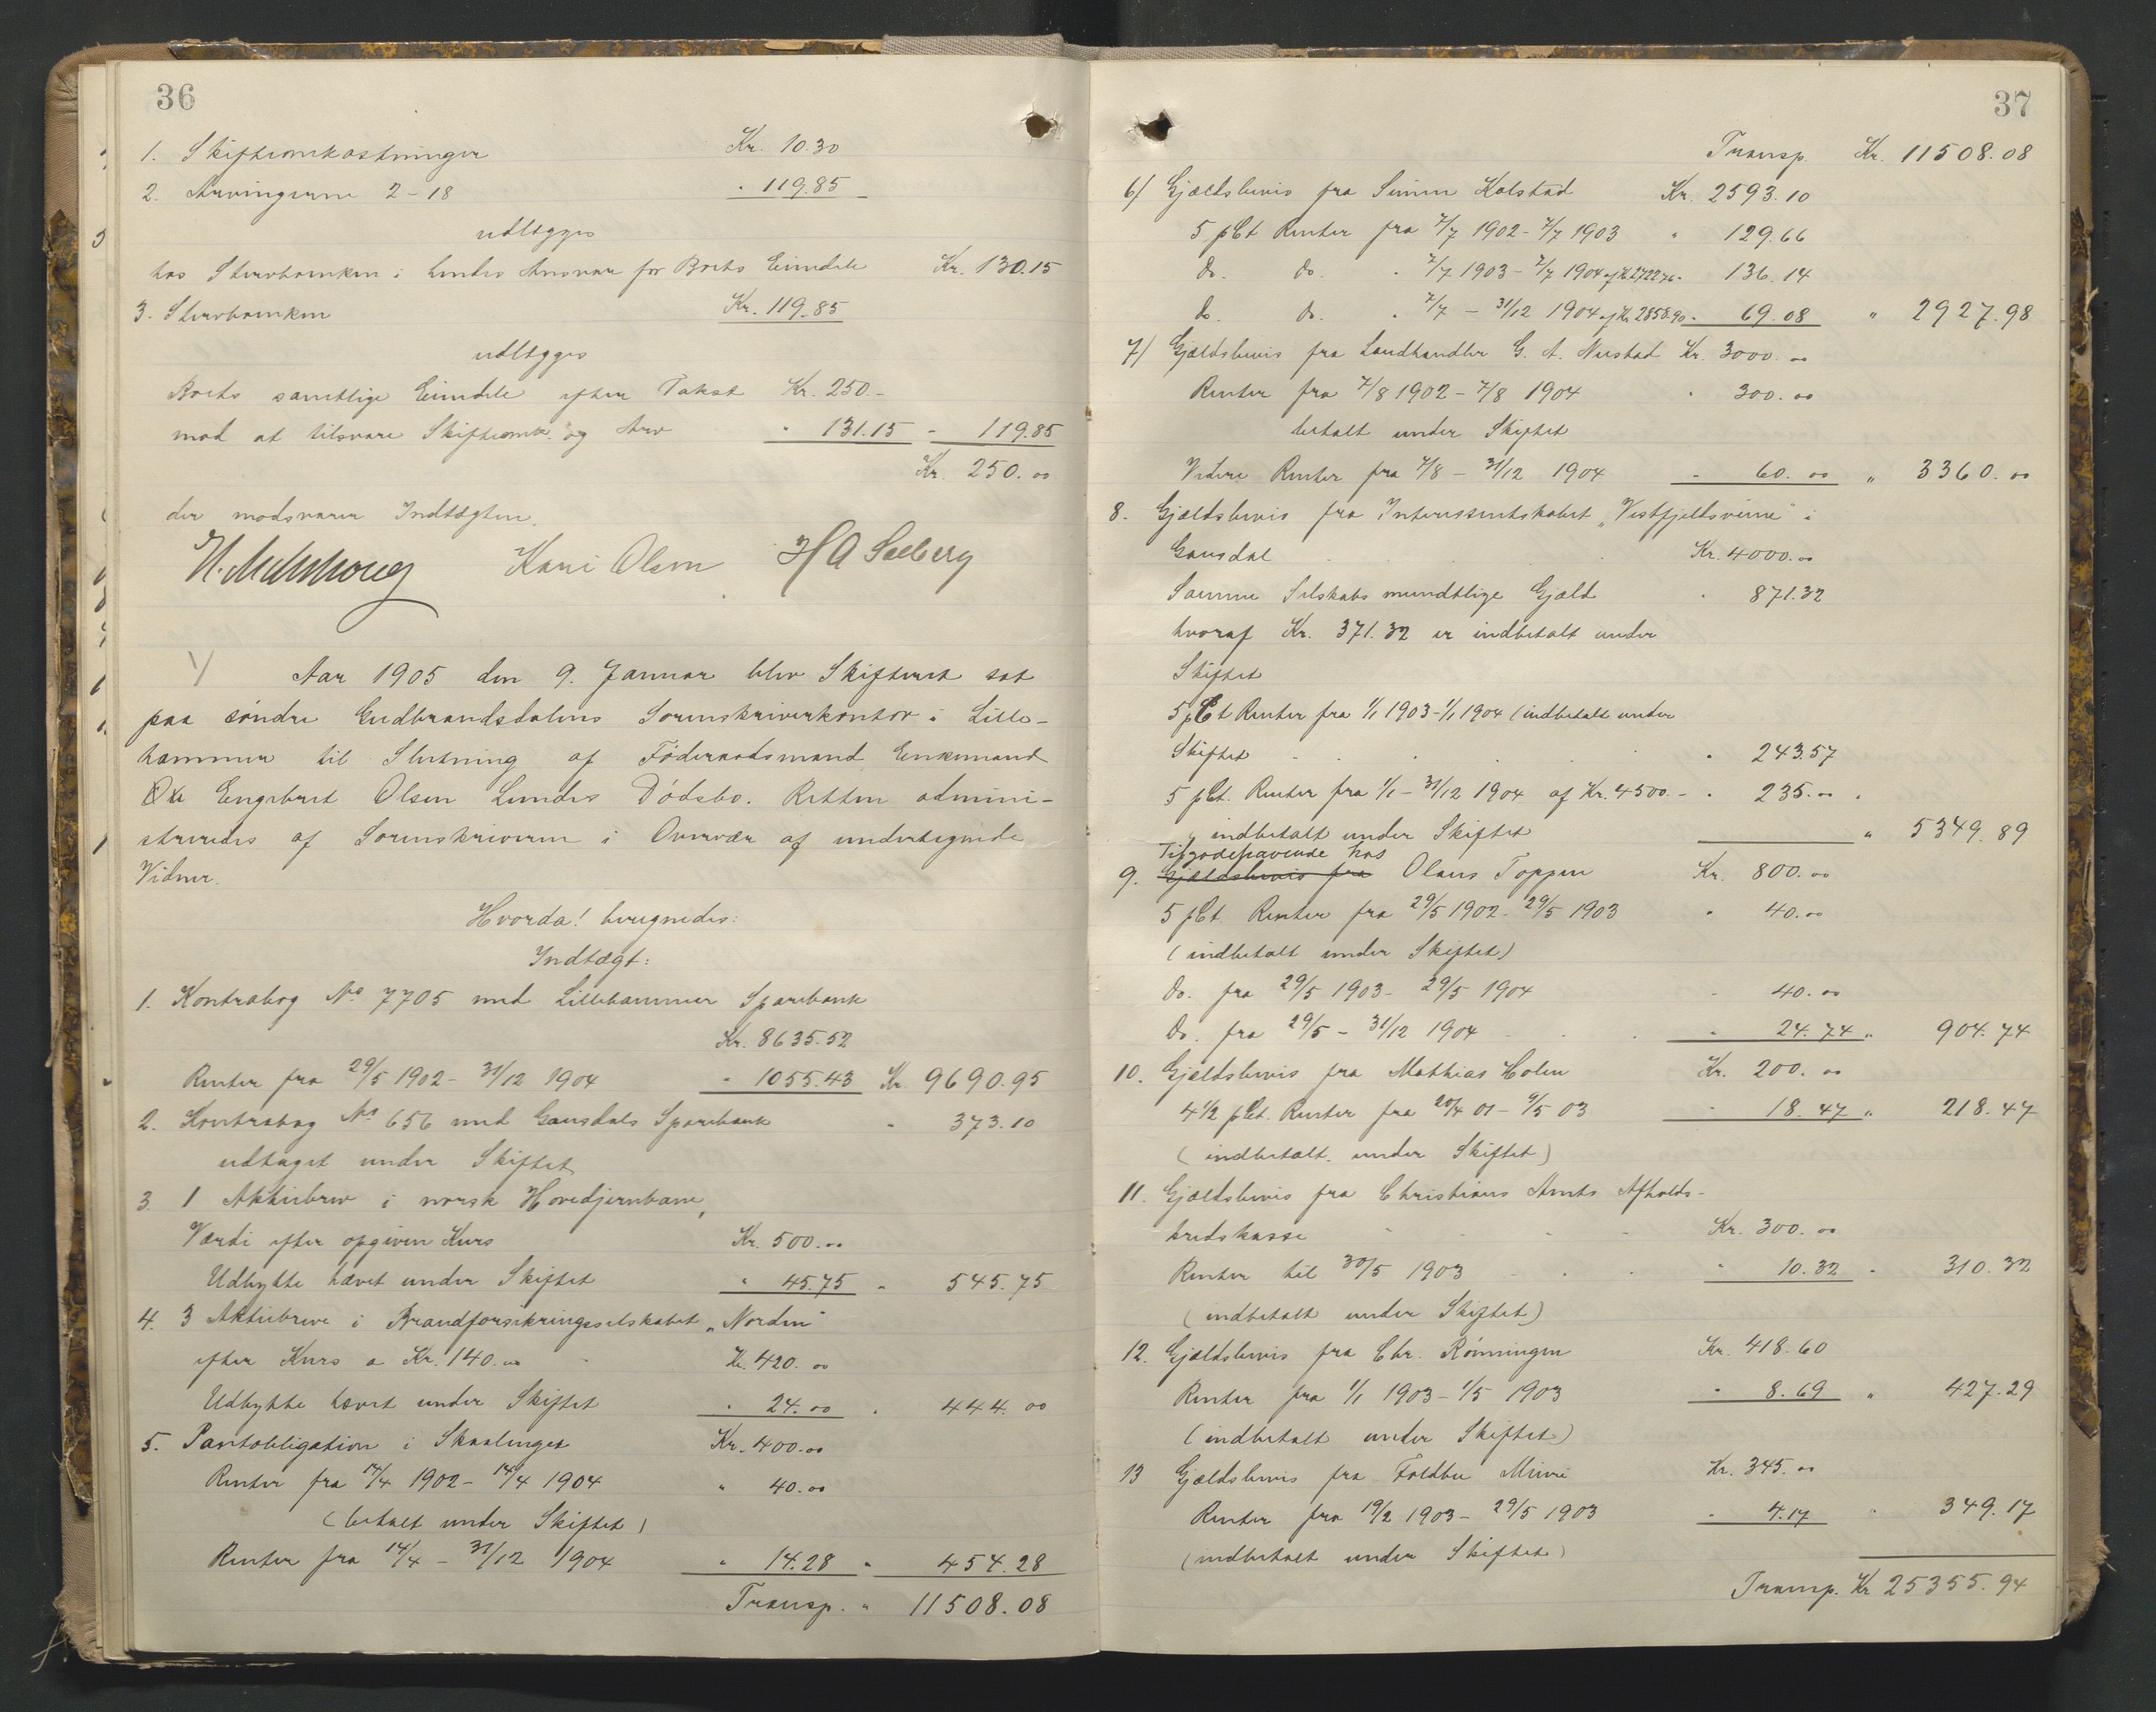 36
1. Skifteomkostninger Kr. 10.30
2. Arvingerne 2-18 " 119.85
udlægges
hos Stervboenken i hendes Ansvar for Boets Eiendele Kr. 130.15
3. Stervboenken Kr. 119.85
udlægges
Boets samtlige Eiendele efter Takst Kr. 250.-
mod at tilsvare Skifteomk. og Arv " 131.15 - 119.85
Kr. 250.00
der modsvarer Indtægten.
Kari Olsen H A Seeberg
Aar 1905 den 9. Januar blev Skifteret sat
paa søndre Gudbrandsdalens Sorenskriverkontor i Lille-
hammer til Slutning af Føderaadsmand Enkemand
Engebret Olsen Lundes Dødsbo. Retten admini-
streredes af Sorenskriveren i Overvær af undertegnede
Vidner.
Hvorda! beregnedes:
Indtægt:
1. Kontrabog No 7705 med Lillehammer Sparebank
Kr. 8635.52
Renter fra 29/5 1902 - 31/12 1904 " 1055.43 Kr. 9690.95
2. Kontrabog No 656 med Gausdals Sparebank " 373.10
udtaget under Skiftet
3. 1 Aktiebrev i norsk Hovedjernbane,
Værdi efter opgiven Kurs Kr. 500.00
Udbytte hævet under Skiftet " 45.75 " 545.75
4. 3 Aktiebreve i Brandforsikringsselskabet „Norden"
efter Kurs a Kr. 140.00 Kr. 420.00
Udbytte hævet under Skiftet " 24.00 " 444.00
5. Pantobligation i Skaalinget Kr. 400.00
Renter fra 14/4 1902 - 14/4 1904 " 40.00
(betalt under Skiftet)
Renter fra 14/4 - 31/12 1904 " 14.28 " 454.28
Transp. " 11508.08
37
Transp. Kr. 11508.08
6/ Gjældsbevis fra Simen Kolstad Kr. 2593.10
5 pCt Renter fra 7/7 1902 - 7/7 1903 " 129.66
do. do. " 7/7 1903 - 7/7 1904 af Kr. 2722.76 - 136.14
do. do. " 7/7 - 31/12 1904 af Kr. 2858.90 - 69.08 " 2927.98
7/ Gjældsbevis fra Landhandler G. A. Nustad Kr. 3000.00
Renter fra 7/8 1902 - 7/8 1904 " 300.00
betalt under Skiftet
Videre Renter fra 7/8 - 31/12 1904 " 60.00 " 3360.00
8. Gjældsbevis fra Interessentskabet „Vestfjeldsveiene" i
Gausdal Kr. 4000.00
Samme Selskabs mundtlige Gjæld " 871.32
hvoraf Kr. 371.32 er indbetalt under
Skiftet
5 pCt Renter fra 1/1 1903 - 1/1 1904 (indbetalt under
Skiftet " 243.57
5 pCt. Renter fra 1/1 - 31/12 1904 af Kr. 4500.- " 235.00
indbetalt under Skiftet " 5349.89
Tilgodehavende hos
9. Gjældsbevis fra Olaus Toppen Kr. 800.00
5 pCt. Renter fra 29/5 1902 - 29/5 1903 " 40.00
(indbetalt under Skiftet)
Do. fra 29/5 1903 - 29/5 1904 " 40.00
Do. fra 29/5 - 31/12 1904 " 24.74 " 904.74
10. Gjældsbevis fra Mathias Holen Kr. 200.00
4 1/2 pCt. Renter fra 20/4 01 - 9/5 03 " 18.47 " 218.47
(indbetalt under Skiftet)
11. Gjældsbevis fra Christians Amts Afholds-
kredskasse Kr. 300.00
Renter til 30/5 1903 " 10.32 " 310.32
(indbetalt under Skiftet)
12. Gjældsbevis fra Chr. Rønningen Kr. 418.60
Renter fra 1/1 1903 - 1/5 1903 " 8.69 " 427.29
(indbetalt under Skiftet)
13 Gjældsbevis fra Foldbu Meieri Kr. 345.00
Renter fra 19/2 1903 - 29/5 1903 " 4.17 " 349.17
(indbetalt under Skiftet)
Transp. Kr 25355.94